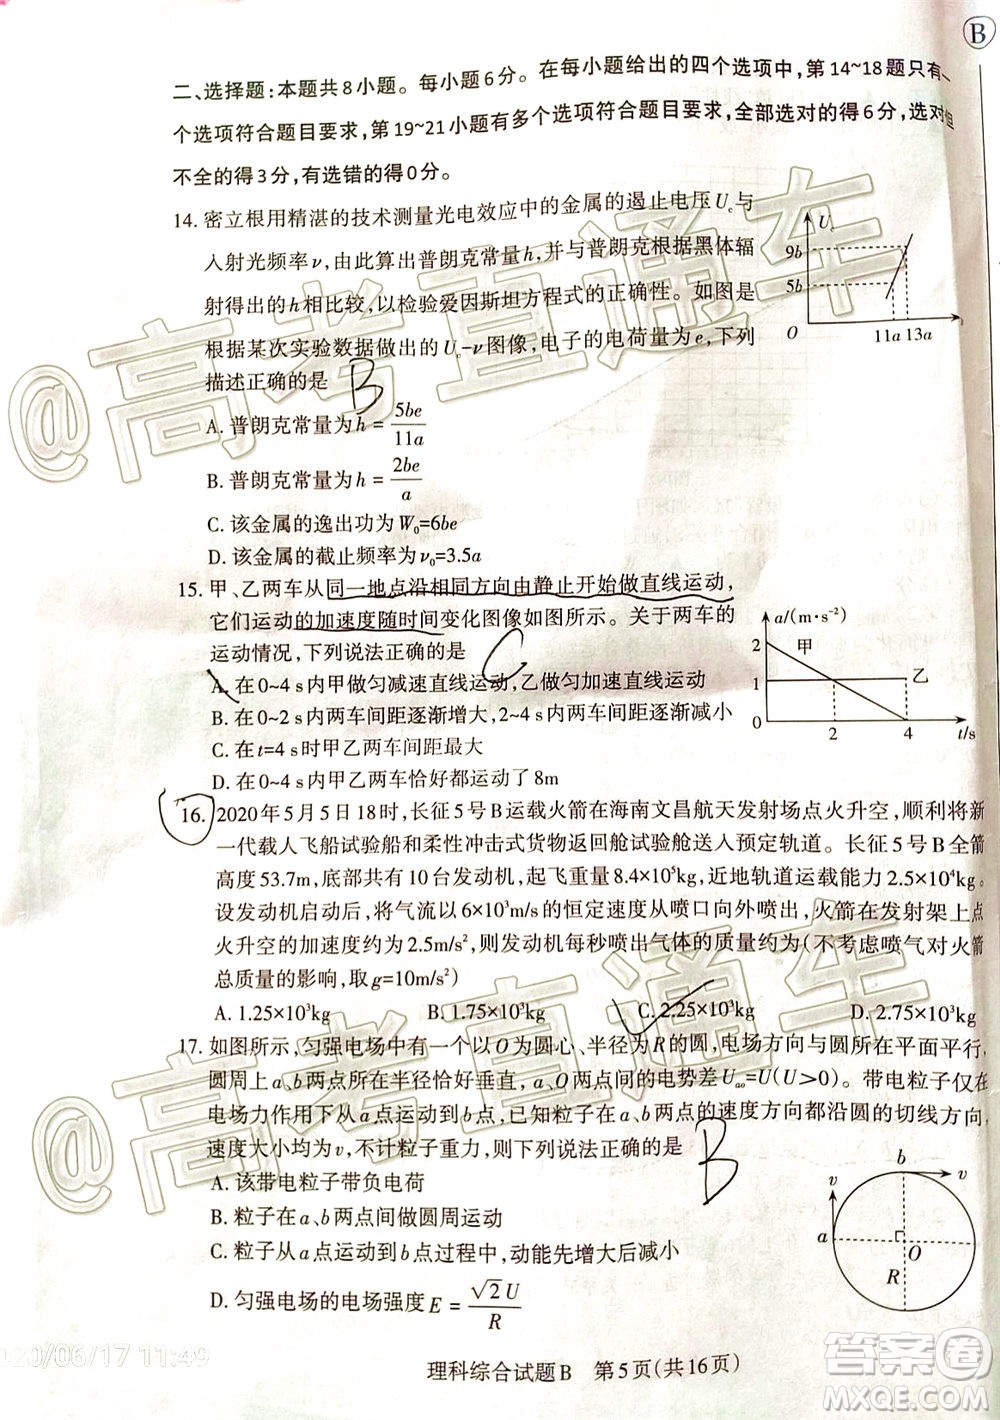 B
二、选择题:本题共8小题。每小题6分。在每小题给出的四个选项中,第14~18题只有一
个选项符合题目要求,第19~21小题有多个选项符合题目要求,全部选对的得6分,选对但
不全的得3分,有选错的得0分。
14. 密立根用精湛的技术测量光电效应中的金属的遏止电压Uc与
入射光频率ν,由此算出普朗克常量h,并与普朗克根据黑体辐
射得出的h相比较,以检验爱因斯坦方程式的正确性。如图是
根据某次实验数据做出的Uc-ν图像,电子的电荷量为e,下列
描述正确的是 B
Uc
9b
5b
O
11a 13a
A. 普朗克常量为h = 5be/11a
B. 普朗克常量为h = 2be/a
C. 该金属的逸出功为W₀=6be
D. 该金属的截止频率为ν₀=3.5a
15. 甲、乙两车从同一地点沿相同方向由静止开始做直线运动,
它们运动的加速度随时间变化图像如图所示。关于两车的
运动情况,下列说法正确的是 C
A. 在0~4 s内甲做匀减速直线运动,乙做匀加速直线运动
B. 在0~2 s内两车间距逐渐增大,2~4 s内两车间距逐渐减小
C. 在t=4 s时甲乙两车间距最大
D. 在0~4 s内甲乙两车恰好都运动了8m
a/(m·s⁻²)
2
甲
1
乙
0
2
4
t/s
16. 2020年5月5日18时,长征5号B运载火箭在海南文昌航天发射场点火升空,顺利将新
一代载人飞船试验船和柔性冲击式货物返回舱试验舱送入预定轨道。长征5号B全箭
高度53.7m,底部共有10台发动机,起飞重量8.4×10⁵kg,近地轨道运载能力2.5×10⁴kg。
设发动机启动后,将气流以6×10³m/s的恒定速度从喷口向外喷出,火箭在发射架上点
火升空的加速度约为2.5m/s²,则发动机每秒喷出气体的质量约为(不考虑喷气对火箭
总质量的影响,取g=10m/s²)
A. 1.25×10³kg B. 1.75×10³kg C. 2.25×10³kg D. 2.75×10³kg
17. 如图所示,匀强电场中有一个以O为圆心、半径为R的圆,电场方向与圆所在平面平行,
圆周上a、b两点的连线与半径恰好垂直,a、O两点间的电势差Uao=U(U>0)。带电粒子仅在
电场力作用下从a点运动到b点,已知粒子在a、b两点的速度方向都沿圆的切线方向,
速度大小均为v,不计粒子重力,则下列说法正确的是 B
A. 该带电粒子带负电荷
B. 粒子在a、b两点间做圆周运动
C. 粒子从a点运动到b点过程中,动能先增大后减小
D. 匀强电场的电场强度E = √2U/R
b
v
v
a
O
R
理科综合试题B 第5页(共16页)
20/06/17 11:49
@高考直通车
@高考直通车
答案圈
MXQE.COM